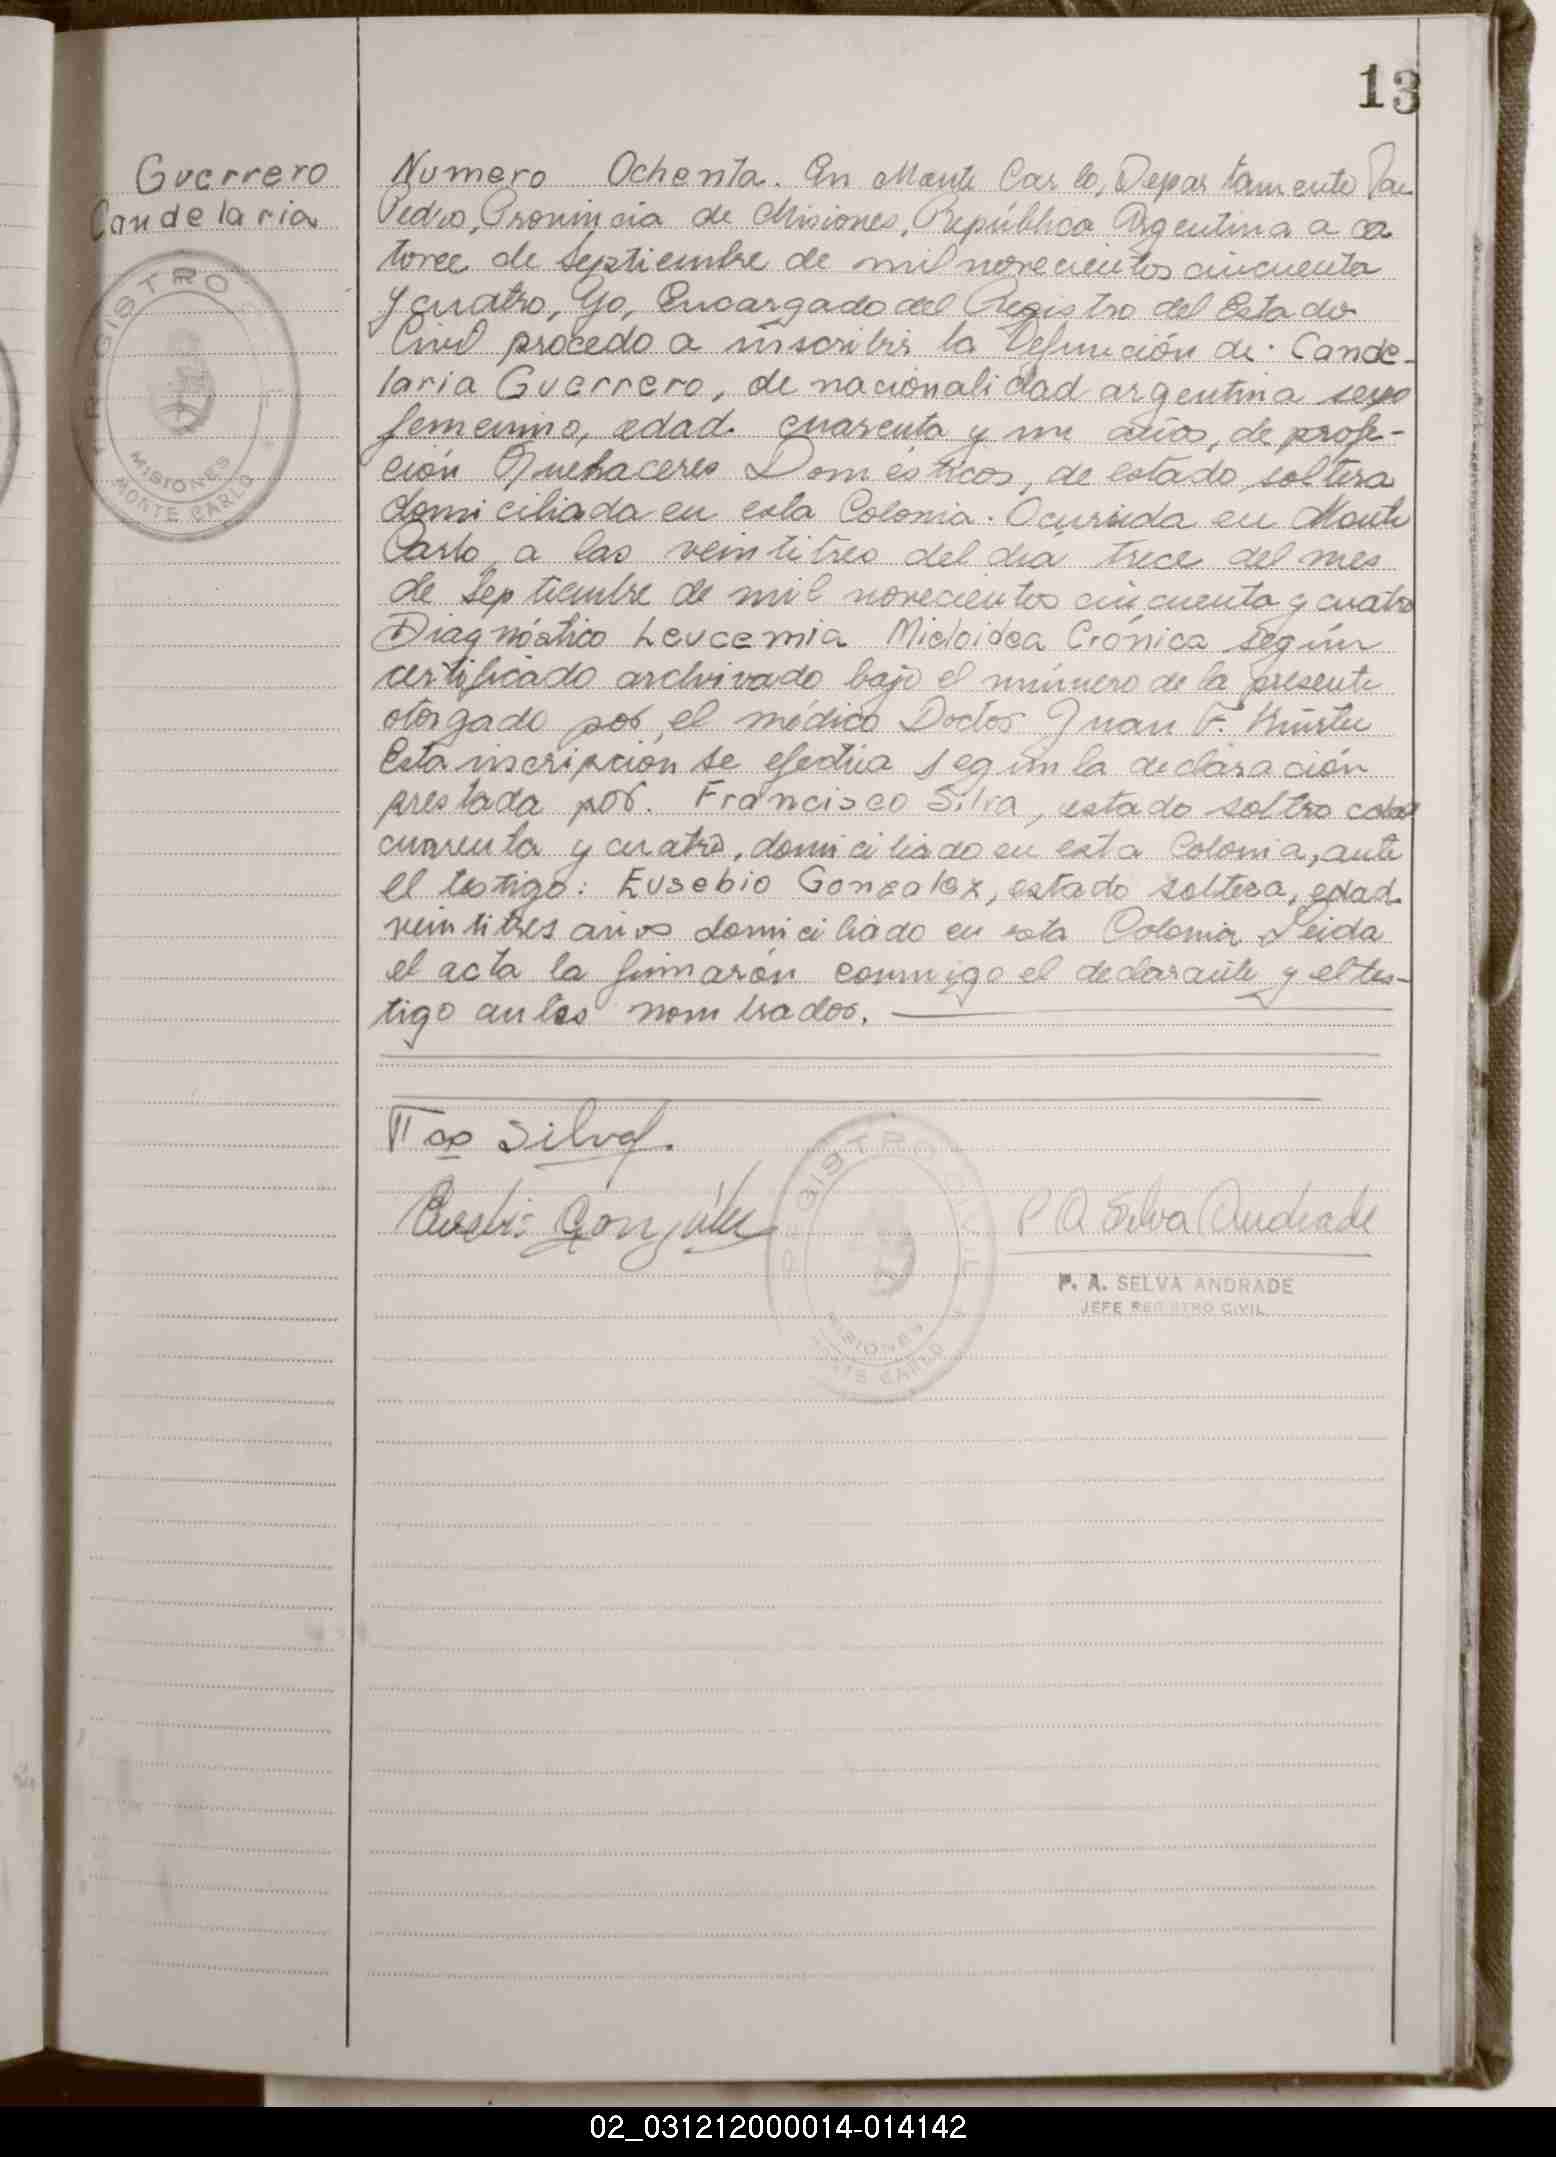 13
Guerrero
Candelaria
Numero Ochenta. En Monte Carlo, Departamento San
Pedro, Provincia de Misiones, República Argentina a ca
torce de Septiembre de mil novecientos cincuenta
y cuatro, Yo, Encargado del Registro del Estado
Civil procedo a inscribir la Defunción de: Cande-
laria Guerrero, de nacionalidad argentina sexo
femenino, edad cuarenta y un años, de profe-
ción Quehaceres Domésticos, de estado soltera
domiciliada en esta Colonia. Ocurrida en Monte
Carlo, a las veintitres del dia trece del mes
de Septiembre de mil novecientos cincuenta y cuatro
Diagnóstico Leucemia Mieloidea Crónica según
certificado archivado bajo el número de la presente
otorgado por el médico Doctor Juan F.
Esta inscripción se efectúa según la declaración
prestada por. Francisco Silva, estado soltro
cuarenta y cuatro, domiciliado en esta Colonia, ante
el testigo: Eusebio Gonzalez, estado soltero, edad
veintitres años domiciliado en esta Colonia Leida
el acta la firmarón conmigo el declarante y el tes-
tigo antes nombrados.
Silva.
Eusebio González
P A Selva Andrade
P. A. SELVA ANDRADE
JEFE REGISTRO CIVIL
REGISTRO CIVIL
MISIONES
MONTE CARLO
REGISTRO CIVIL
MISIONES
MONTE CARLO
02_031212000014-014142